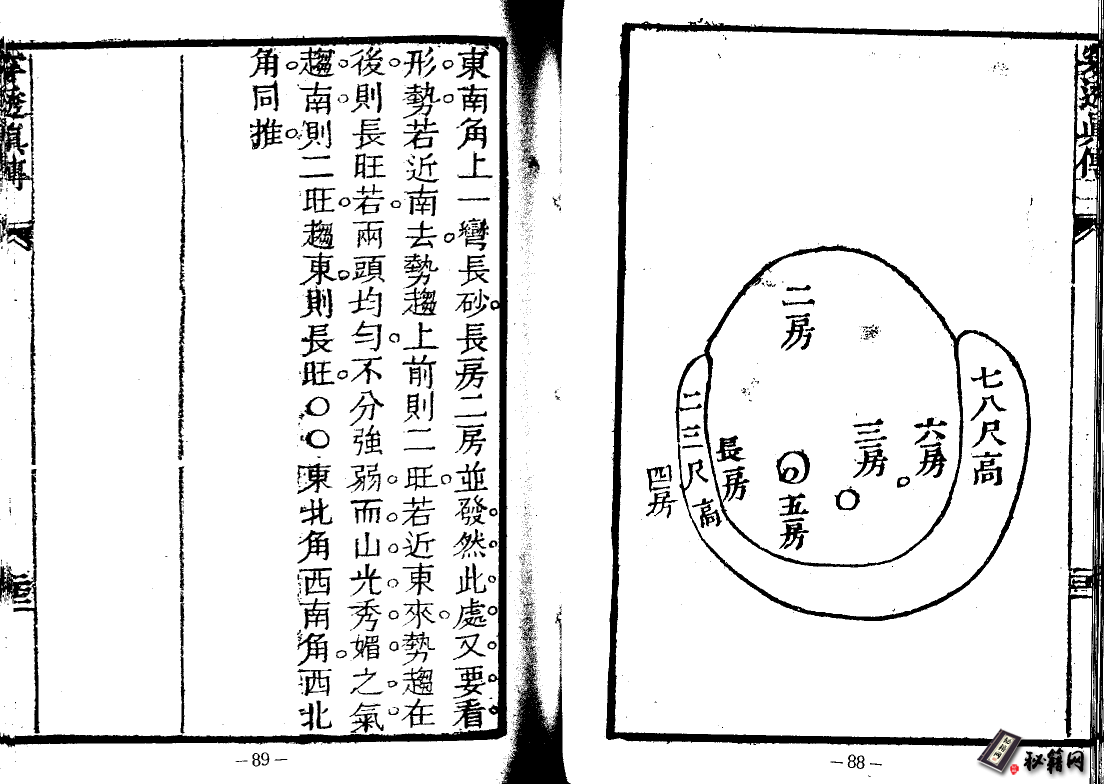 二房
七八尺高
六房
三房
五房
長房
二三尺高
四房
－88－
秘籍网
東南角上一彎長砂長房二房並發然此處又要看
形勢若近南去勢趨上前則二旺若近東來勢趨在
後則長旺若兩頭均勻不分強弱而山光秀媚之氣
趨南則二旺趨東則長旺〇〇東北角西南角西北
角同推
透眞傳
－89－